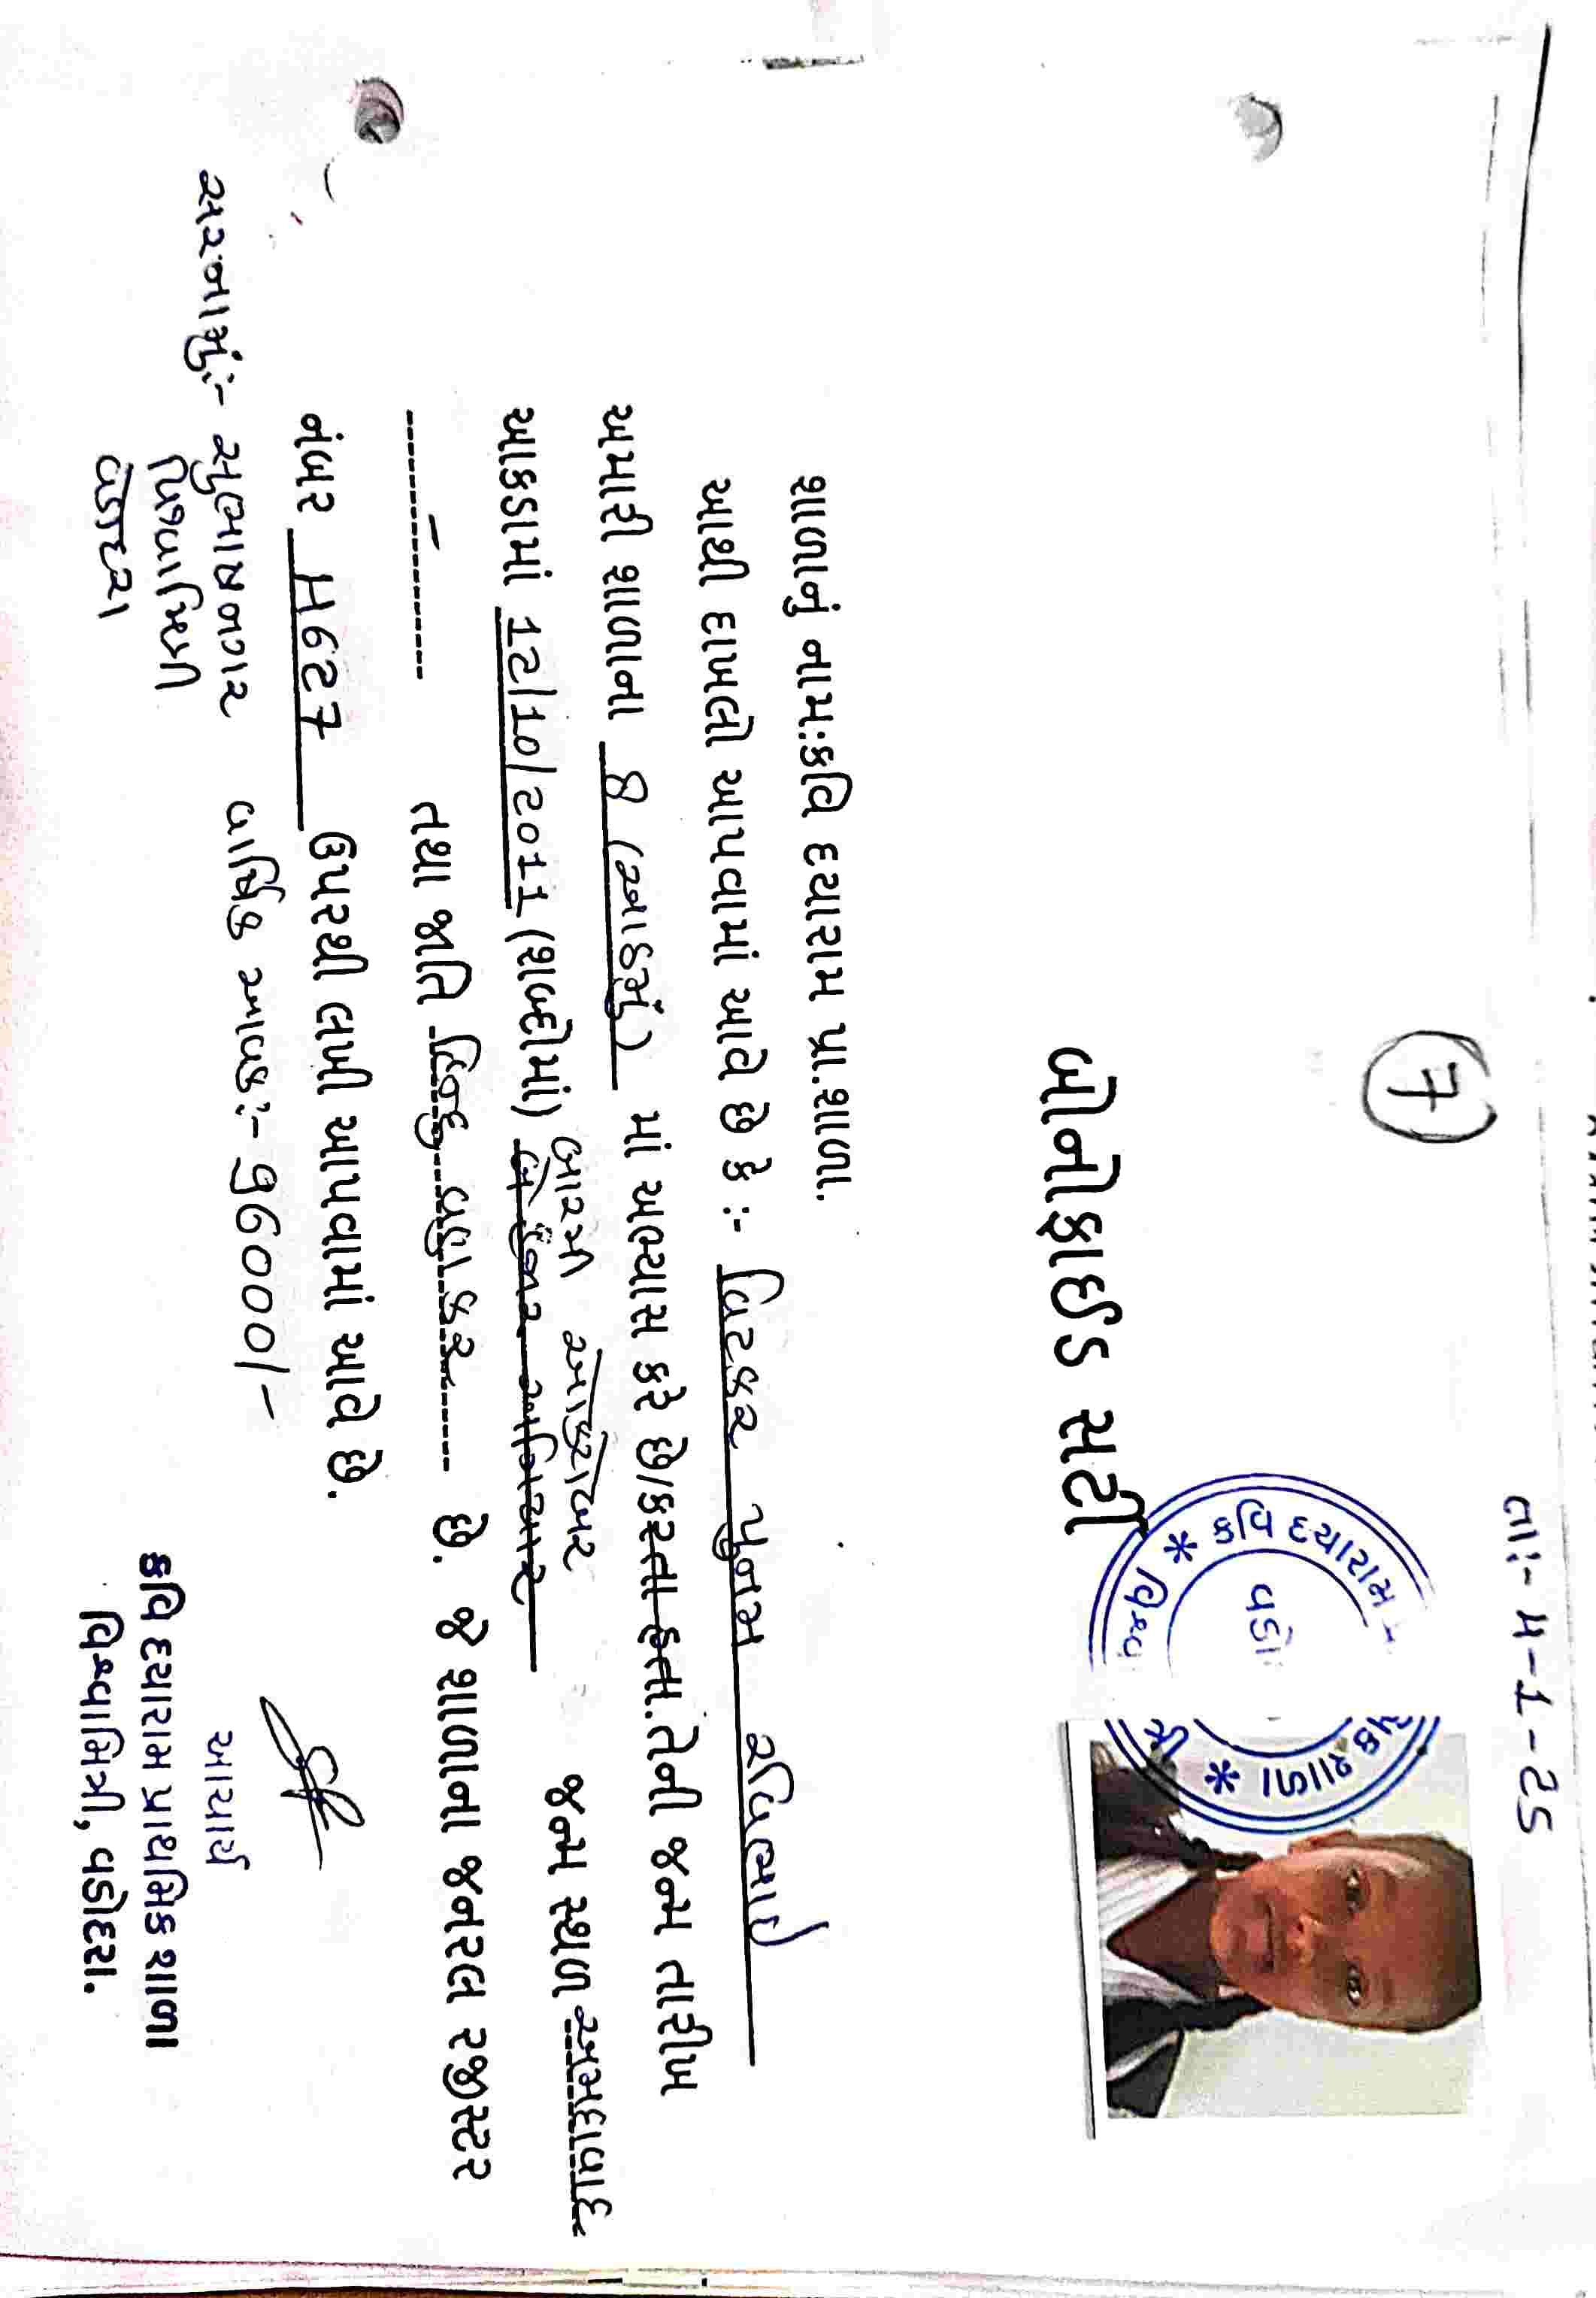 તા:- ૫-1-25
7
બોનોફાઈડ સર્ટી
* કવિ દયારામ
શાળા *
વડો
શાળાનું નામ:કવિ દયારામ પ્રા.શાળા.
આથી દાખલો આપવામાં આવે છે કે :- વિટકર પુનમ રવિભાઈ
અમારી શાળાના 8 (આઠમું) માં અભ્યાસ કરે છે/કરતા હતા.તેની જન્મ તારીખ
બારમી ઓક્ટોબર
આકડામાં 12/10/2011 (શબ્દોમાં) બે હજાર અગિયાર જન્મ સ્થળ અમદાવાદ
- તથા જાતિ હિન્દુ વણકર છે. જે શાળાના જનરલ રજીસ્ટર
નંબર ૫627 ઉપરથી લખી આપવામાં આવે છે.
સરનામું:- સુભાષનગર વાર્ષિક આવક:- 96000/-
વિશ્વામિત્રી
વડોદરા
આચાર્ય
કવિ દયારામ પ્રાથમિક શાળા
વિશ્વામિત્રી, વડોદરા.